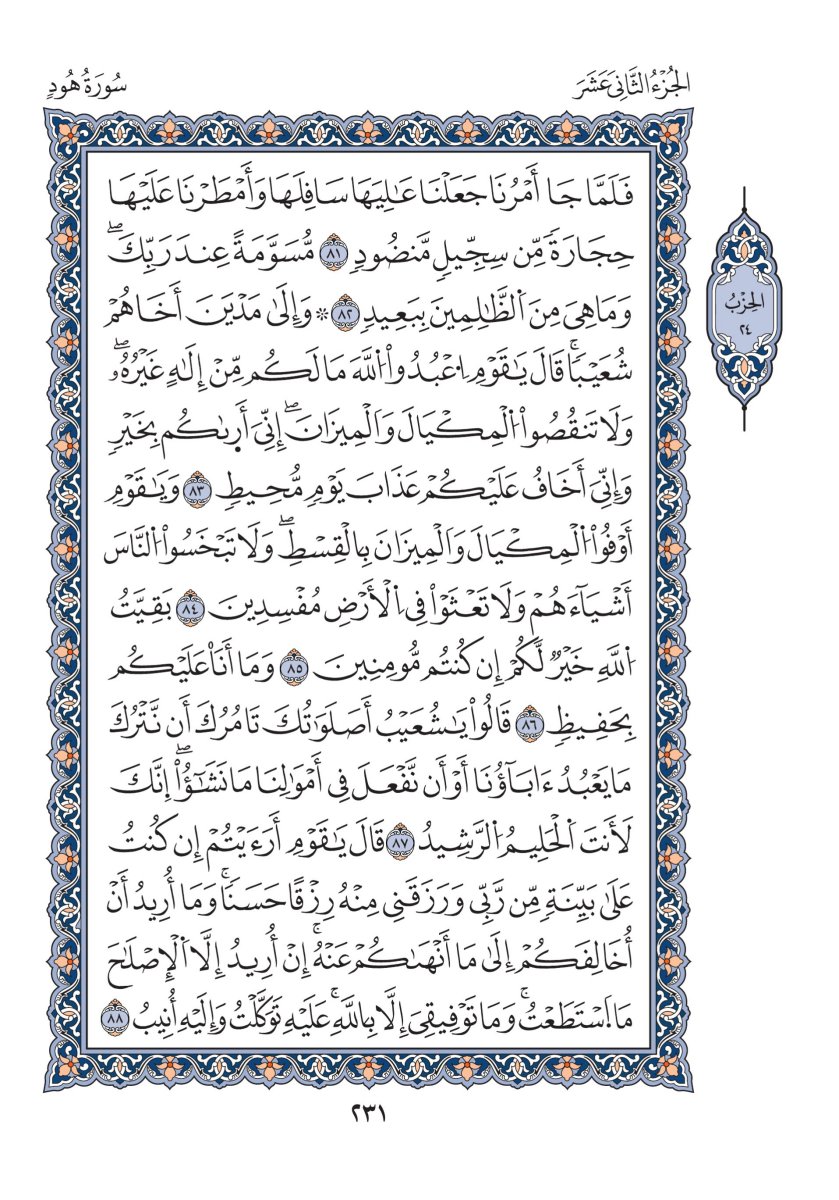 الجُزْءُ الثَّانِيَ عَشَرَ
سُورَةُ هُودٍ
فَلَمَّا جَا أَمْرُنَا جَعَلْنَا عَٰلِيَهَا سَافِلَهَا وَأَمْطَرْنَا عَلَيْهَا
حِجَارَةٗ مِّن سِجِّيلٖ مَّنضُودٖ ٨١ مُّسَوَّمَةً عِندَ رَبِّكَۖ
وَمَا هِيَ مِنَ اَ۬لظَّٰلِمِينَ بِبَعِيدٖ ٨٢ ۞ وَإِلَىٰ مَدْيَنَ أَخَاهُمْ
شُعَيْبٗاۚ قَالَ يَٰقَوْمِ اِ۟عْبُدُواْ اُ۬للَّهَ مَا لَكُم مِّنْ إِلَٰهٍ غَيْرُهُۥۖ
وَلَا تَنقُصُواْ اُ۬لْمِكْيَالَ وَالْمِيزَانَۖ إِنِّيَ أَر۪ىٰكُم بِخَيْرٖ
وَإِنِّيَ أَخَافُ عَلَيْكُمْ عَذَابَ يَوْمٖ مُّحِيطٖ ٨٣ وَيَٰقَوْمِ
أَوْفُواْ اُ۬لْمِكْيَالَ وَالْمِيزَانَ بِالْقِسْطِۖ وَلَا تَبْخَسُواْ اُ۬لنَّاسَ
أَشْيَآءَهُمْ وَلَا تَعْثَوْاْ فِي اِ۬لْأَرْضِ مُفْسِدِينَ ٨٤ بَقِيَّتُ
اُ۬للَّهِ خَيْرٞ لَّكُمْ إِن كُنتُم مُّومِنِينَ ٨٥ وَمَا أَنَا عَلَيْكُم
بِحَفِيظٖ ٨٦ قَالُواْ يَٰشُعَيْبُ أَصَلَوَٰتُكَ تَامُرُكَ أَن نَّتْرُكَ
مَا يَعْبُدُ ءَابَآؤُنَا أَوْ أَن نَّفْعَلَ فِي أَمْوَٰلِنَا مَا نَشَٰٓؤُاْۖ إِنَّكَ
لَأَنتَ اَ۬لْحَلِيمُ اُ۬لرَّشِيدُ ٨٧ قَالَ يَٰقَوْمِ أَرَءَيْتُمْ إِن كُنتُ
عَلَىٰ بَيِّنَةٖ مِّن رَّبِّي وَرَزَقَنِي مِنْهُ رِزْقًا حَسَنٗاۚ وَمَا أُرِيدُ أَنْ
أُخَالِفَكُمْ إِلَىٰ مَا أَنْهَىٰكُمْ عَنْهُۚ إِنْ أُرِيدُ إِلَّا اَ۬لْإِصْلَٰحَ
مَا اَ۪سْتَطَعْتُۚ وَمَا تَوْفِيقِيَ إِلَّا بِاللَّهِۚ عَلَيْهِ تَوَكَّلْتُ وَإِلَيْهِ أُنِيبُ ٨٨
الحِزْبُ
٢٤
٢٣١